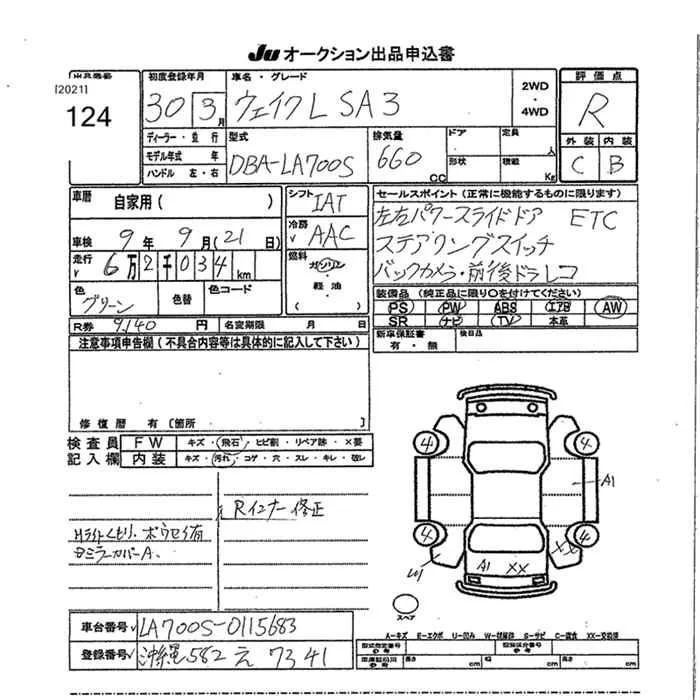 Ju オークション出品申込書
出品番号
[2021]
124
初度登録年月
30 3月
車名・グレード
ウェイクL SA3
2WD
・
4WD
評価点
R
外装 内装
C B
ディーラー・並行
モデル年式 年
ハンドル 左・右
型式
DBA-LA700S
排気量
660 CC
ドア
形状
定員 人
積載 Kg
車歴 自家用( )
車検 9年 9月(21日)
走行 6万2千034km
色 グリーン
色替
色コード
R券 9140円
名変期限 月 日
シフト IAT
冷房 AAC
燃料 ガソリン
・
軽油
・
( )
セールスポイント(正常に機能するものに限ります)
左右パワースライドドア ETC
ステアリングスイッチ
バックカメラ・前後ドラレコ
装備品(純正品に限り○を付けてください)
PS PW ABS エアB AW
SR ナビ TV 本革
新車保証書
有・無
後日品
注意事項申告欄(不具合内容等は具体的に記入して下さい)
修復歴 有[箇所 ]
検査員
記入欄
FW キズ・飛石・ヒビ割・リペア跡・×要
内装 キズ・汚れ・コゲ・穴・スレ・キレ・破レ
Rインナー修正
Hライトくもり・ボウセイ有
ミラーカバーA、
4 4
A1
4 4
XX
A1 XX
スペア
A-キズ E-エクボ U-凹み W-補修跡 S-サビ C-腐食 XX-交換済
車台番号 LA700S-0115683
登録番号 沖縄 582 え 7341
型式指定番号
類別区分番号
長さ cm 幅 cm 高さ cm